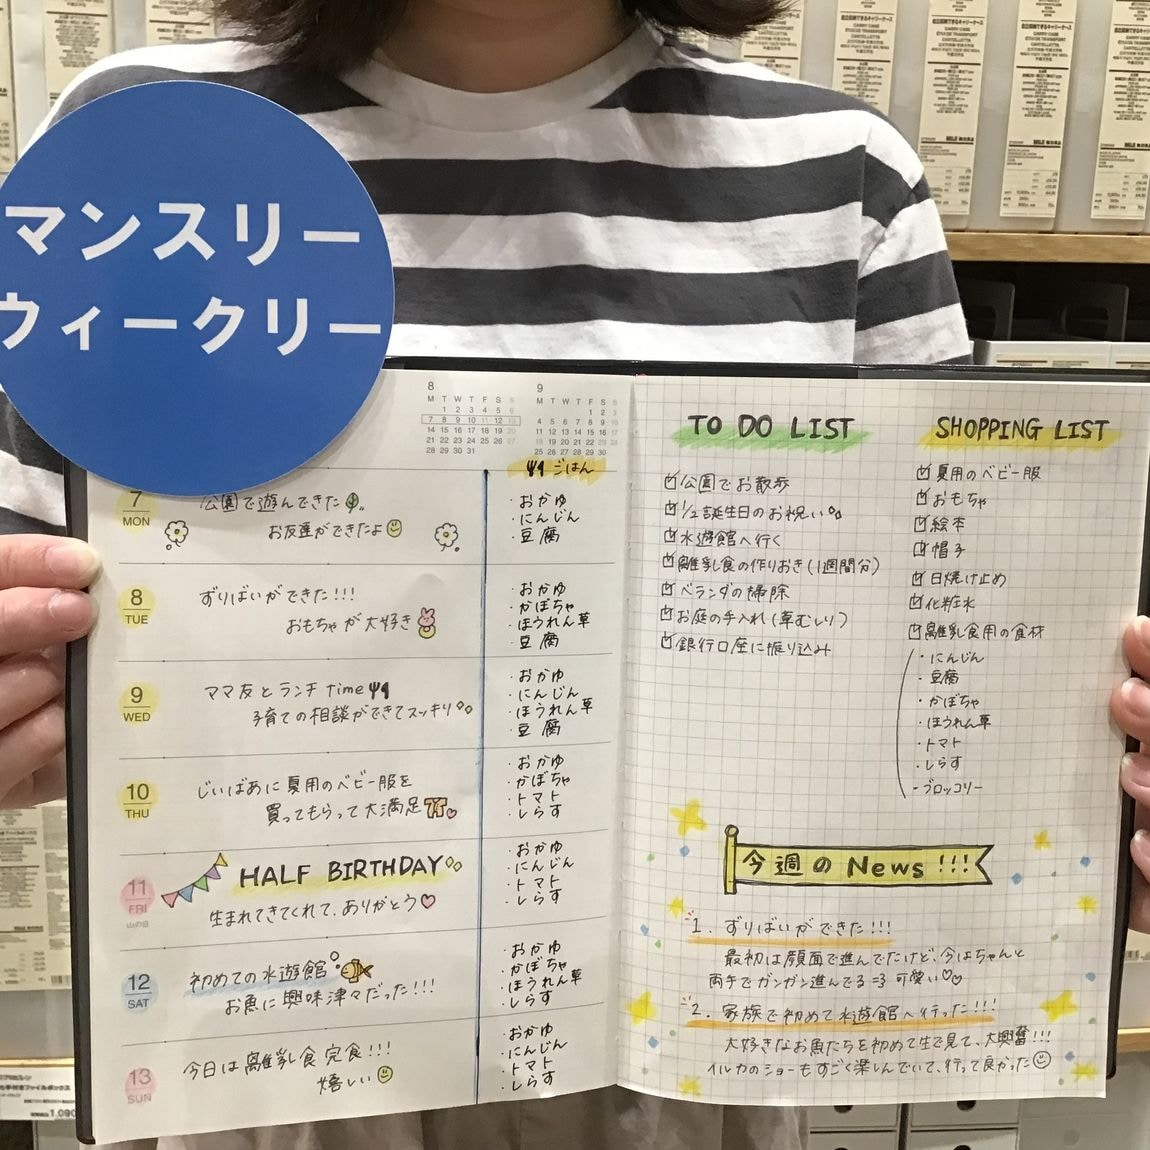 マンスリー
ウィークリー
8
M T W T F S S
1 2 3 4 5 6
7 8 9 10 11 12 13
14 15 16 17 18 19 20
21 22 23 24 25 26 27
28 29 30 31
9
M T W T F S S
1 2 3
4 5 6 7 8 9 10
11 12 13 14 15 16 17
18 19 20 21 22 23 24
25 26 27 28 29 30
ごはん
7
MON
公園で遊んできた
お友達ができたよ
・おかゆ
・にんじん
・豆腐
8
TUE
ずりばいができた!!!
おもちゃが大好き
・おかゆ
・かぼちゃ
・ほうれん草
・豆腐
9
WED
ママ友とランチtime
子育ての相談ができてスッキリ
・おかゆ
・にんじん
・ほうれん草
・豆腐
10
THU
じいばあに夏用のベビー服を
買ってもらって大満足
・おかゆ
・かぼちゃ
・トマト
・しらす
11
FRI
山の日
HALF BIRTHDAY
生まれてきてくれて、ありがとう♡
・おかゆ
・にんじん
・トマト
・しらす
12
SAT
初めての水遊館
お魚に興味津々だった!!!
・おかゆ
・かぼちゃ
・ほうれん草
・しらす
13
SUN
今日は離乳食完食!!!
嬉しい
・おかゆ
・にんじん
・トマト
・しらす
TO DO LIST
公園でお散歩
1/2誕生日のお祝い
水遊館へ行く
離乳食の作りおき(1週間分)
ベランダの掃除
お庭の手入れ(草むしり)
銀行口座に振り込み
SHOPPING LIST
夏用のベビー服
おもちゃ
絵本
帽子
日焼け止め
化粧水
離乳食用の食材
・にんじん
・豆腐
・かぼちゃ
・ほうれん草
・トマト
・しらす
・ブロッコリー
今週のNews!!!
1. ずりばいができた!!!
最初は顔面で進んでたけど、今はちゃんと
両手でガンガン進んでる =3 可愛い♡♡
2. 家族で初めて水遊館へ行った!!!
大好きなお魚たちを初めて生で見て、大興奮!!!
イルカのショーもすごく楽しんでいて、行って良かった